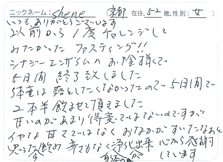 ニックネーム: chene 京都 在住, 52 歳, 性別: 女
いつもありがとうございます
以前から1度チャレンジして
みたかったファスティング!!
シナジーエンザイムのお陰様で
5日間 終了致しました
体重は落としたくなかったので 5日間で
2本半飲ませて頂きました
甘いのがあまり得意ではないのですが
イヤな甘さではなく おなかがすいたなぁと
思った 飲め 幸せな 出来 心から感謝
しています